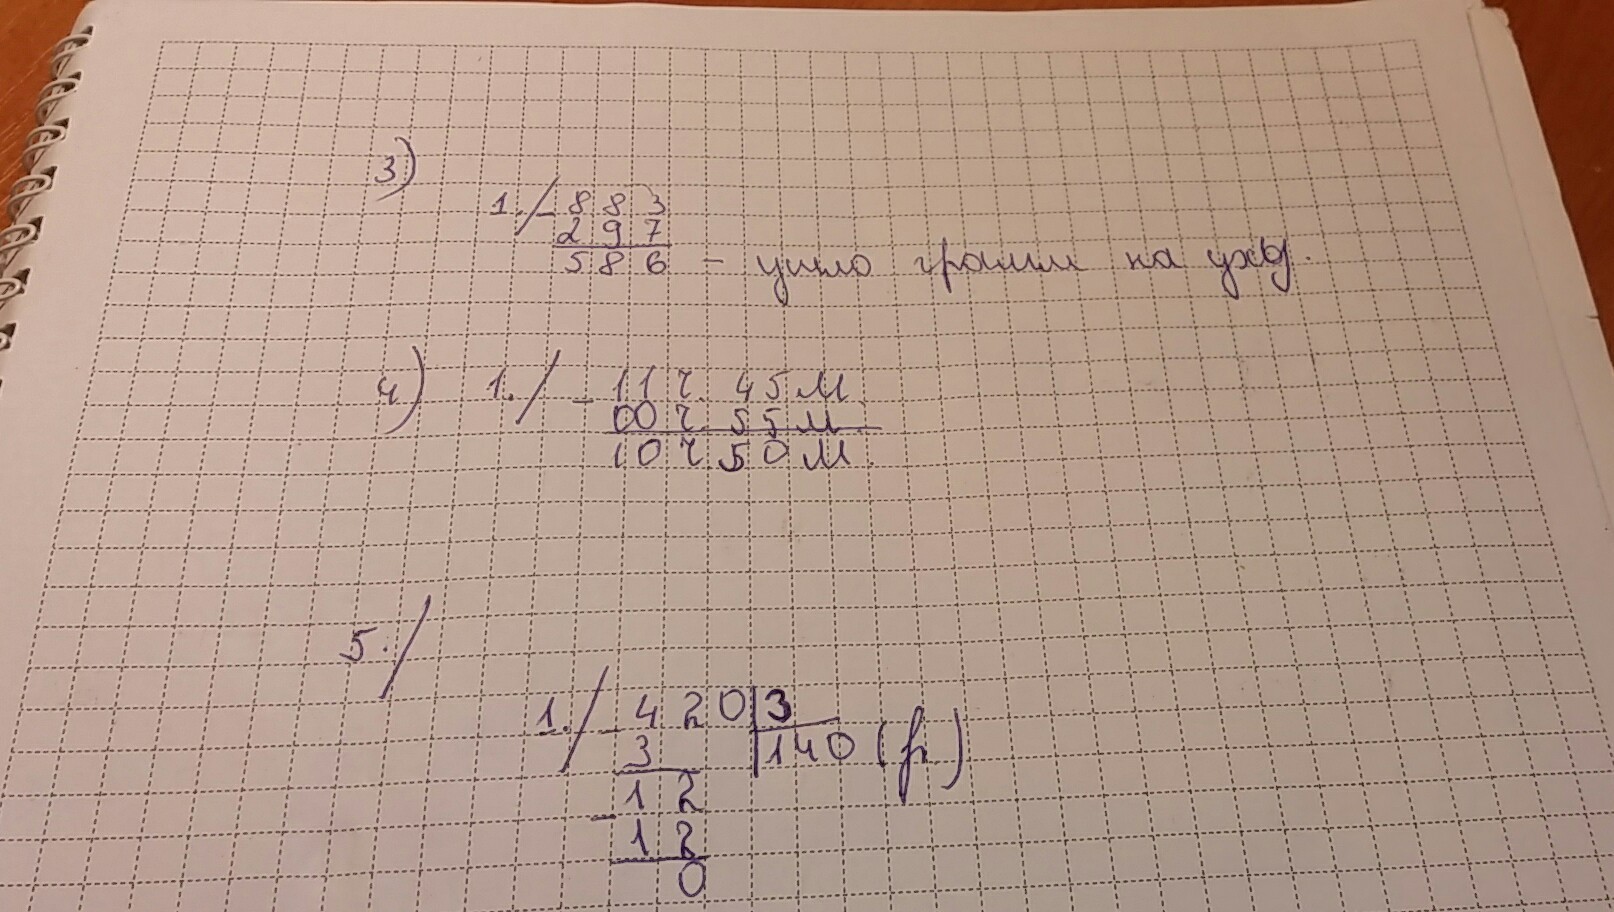 3)
1./ - 883
297
586 - ушло грамм на уход.
4) 1./ - 11ч. 45м.
00ч. 55м.
10ч. 50м.
5./
1./ - 420|3
3 140 (р)
12
- 12
0